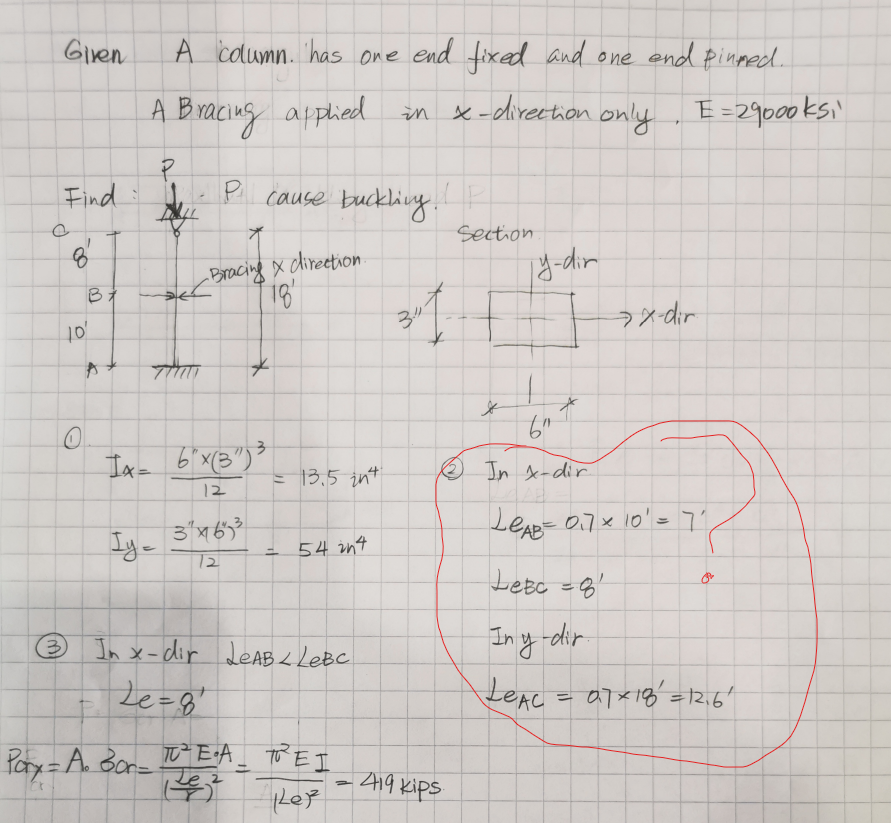 Given A column. has one end fixed and one end pinned.
A Bracing applied in x-direction only. E=29000ksi
Find: P cause buckling.
P
C
8'
B
10'
A
Bracing X direction
18'
Section
y-dir
3"
x-dir
6"
①
Ix= 6"×(3")³/12 = 13.5 in⁴
Iy= 3"×(6")³/12 = 54 in⁴
② In x-dir
LeAB= 0.7 × 10' = 7'
LeBC = 8'
In y-dir.
LeAC = 0.7×18' =12.6'
?
③ In x-dir LeAB<LeBC
Le=8'
Pcrx= A. σcr= π²E·A/(Le/r)² = π²EI/(Le)² = 419 kips